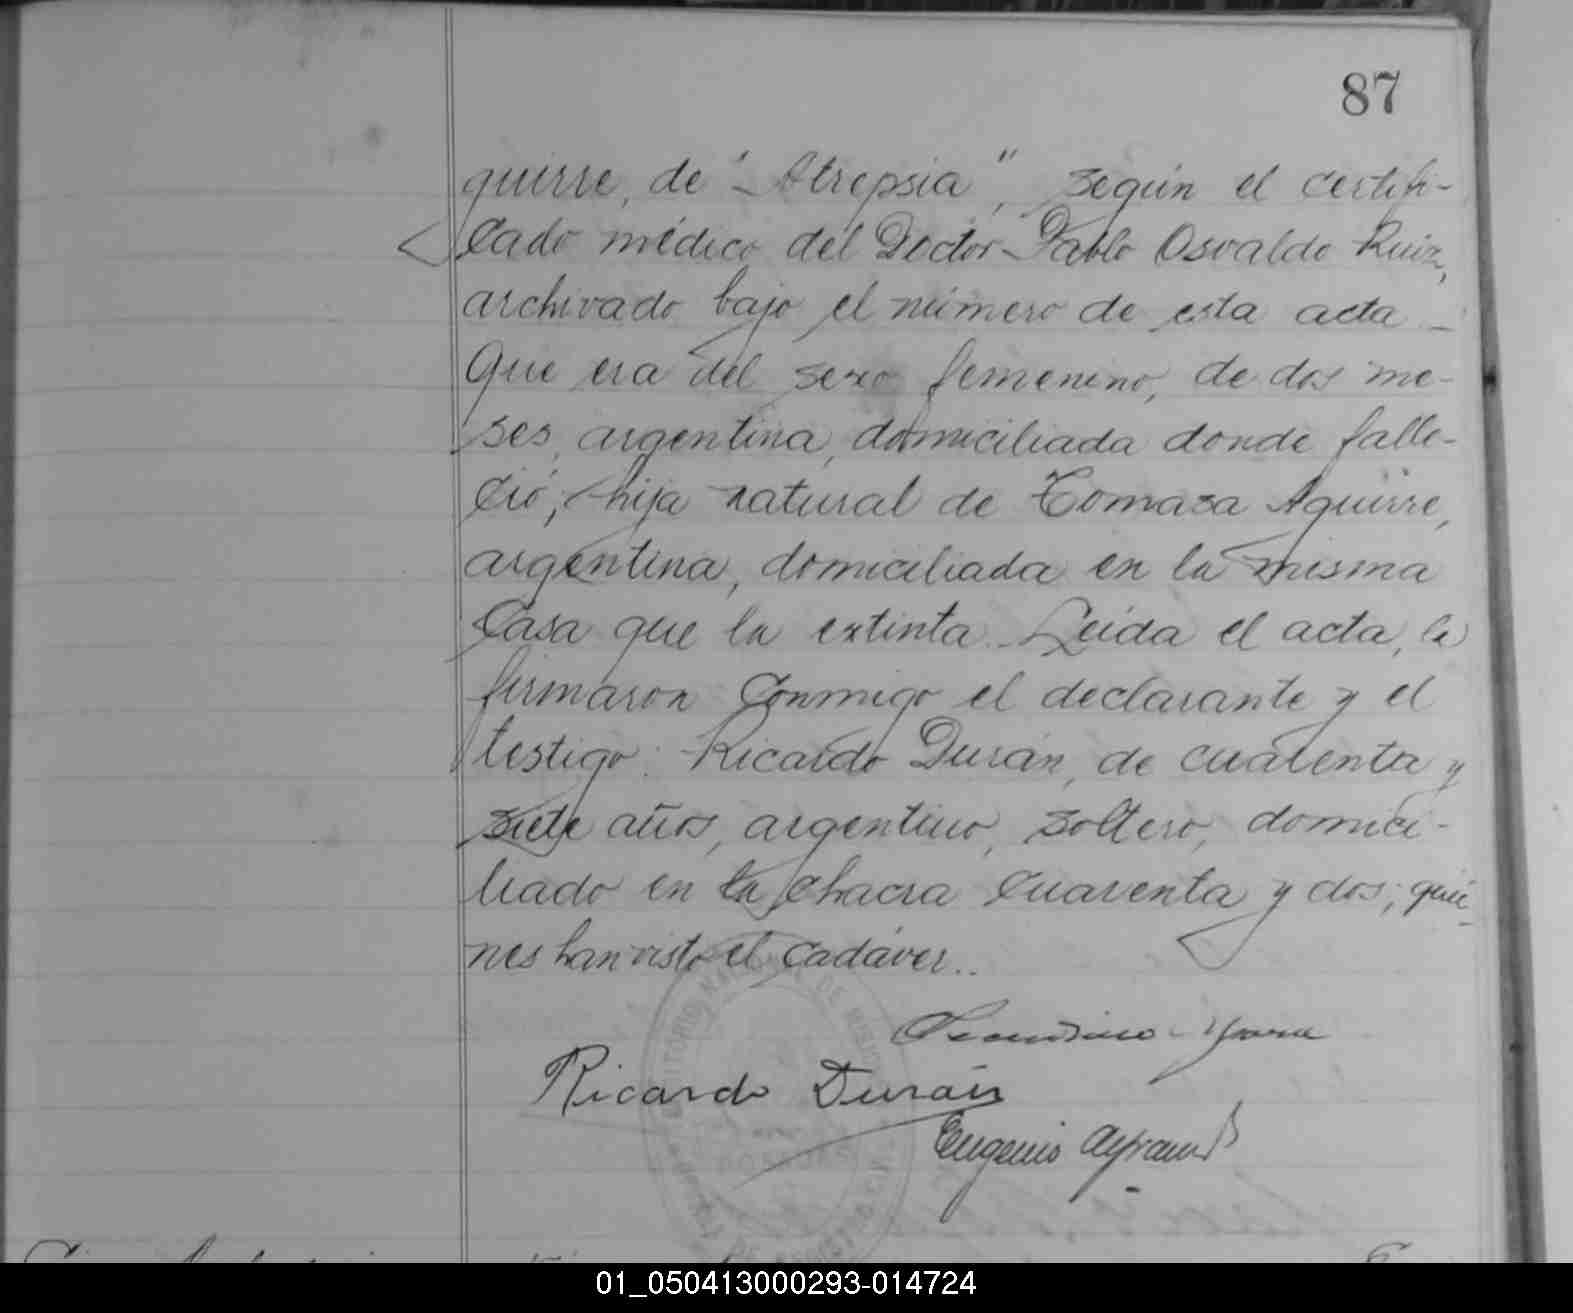 87
quirre, de "Atrepsia", según el certifi-
cado médico del Doctor Pablo Osvaldo Ruiz,
archivado bajo el número de esta acta –
Que era del sexo femenino, de dos me-
ses, argentina, domiciliada donde falle-
ció; hija natural de Tomasa Aguirre,
argentina, domiciliada en la misma
casa que la extinta. Leída el acta, la
firmaron conmigo el declarante y el
testigo: Ricardo Durán, de cuarenta y
siete años, argentino, soltero, domici-
liado en la chacra cuarenta y dos; quie-
nes han visto el cadáver..
Secundino
Ricardo Durán
Eugenio
TERRITORIO NACIONAL DE MISIONES
01_050413000293-014724